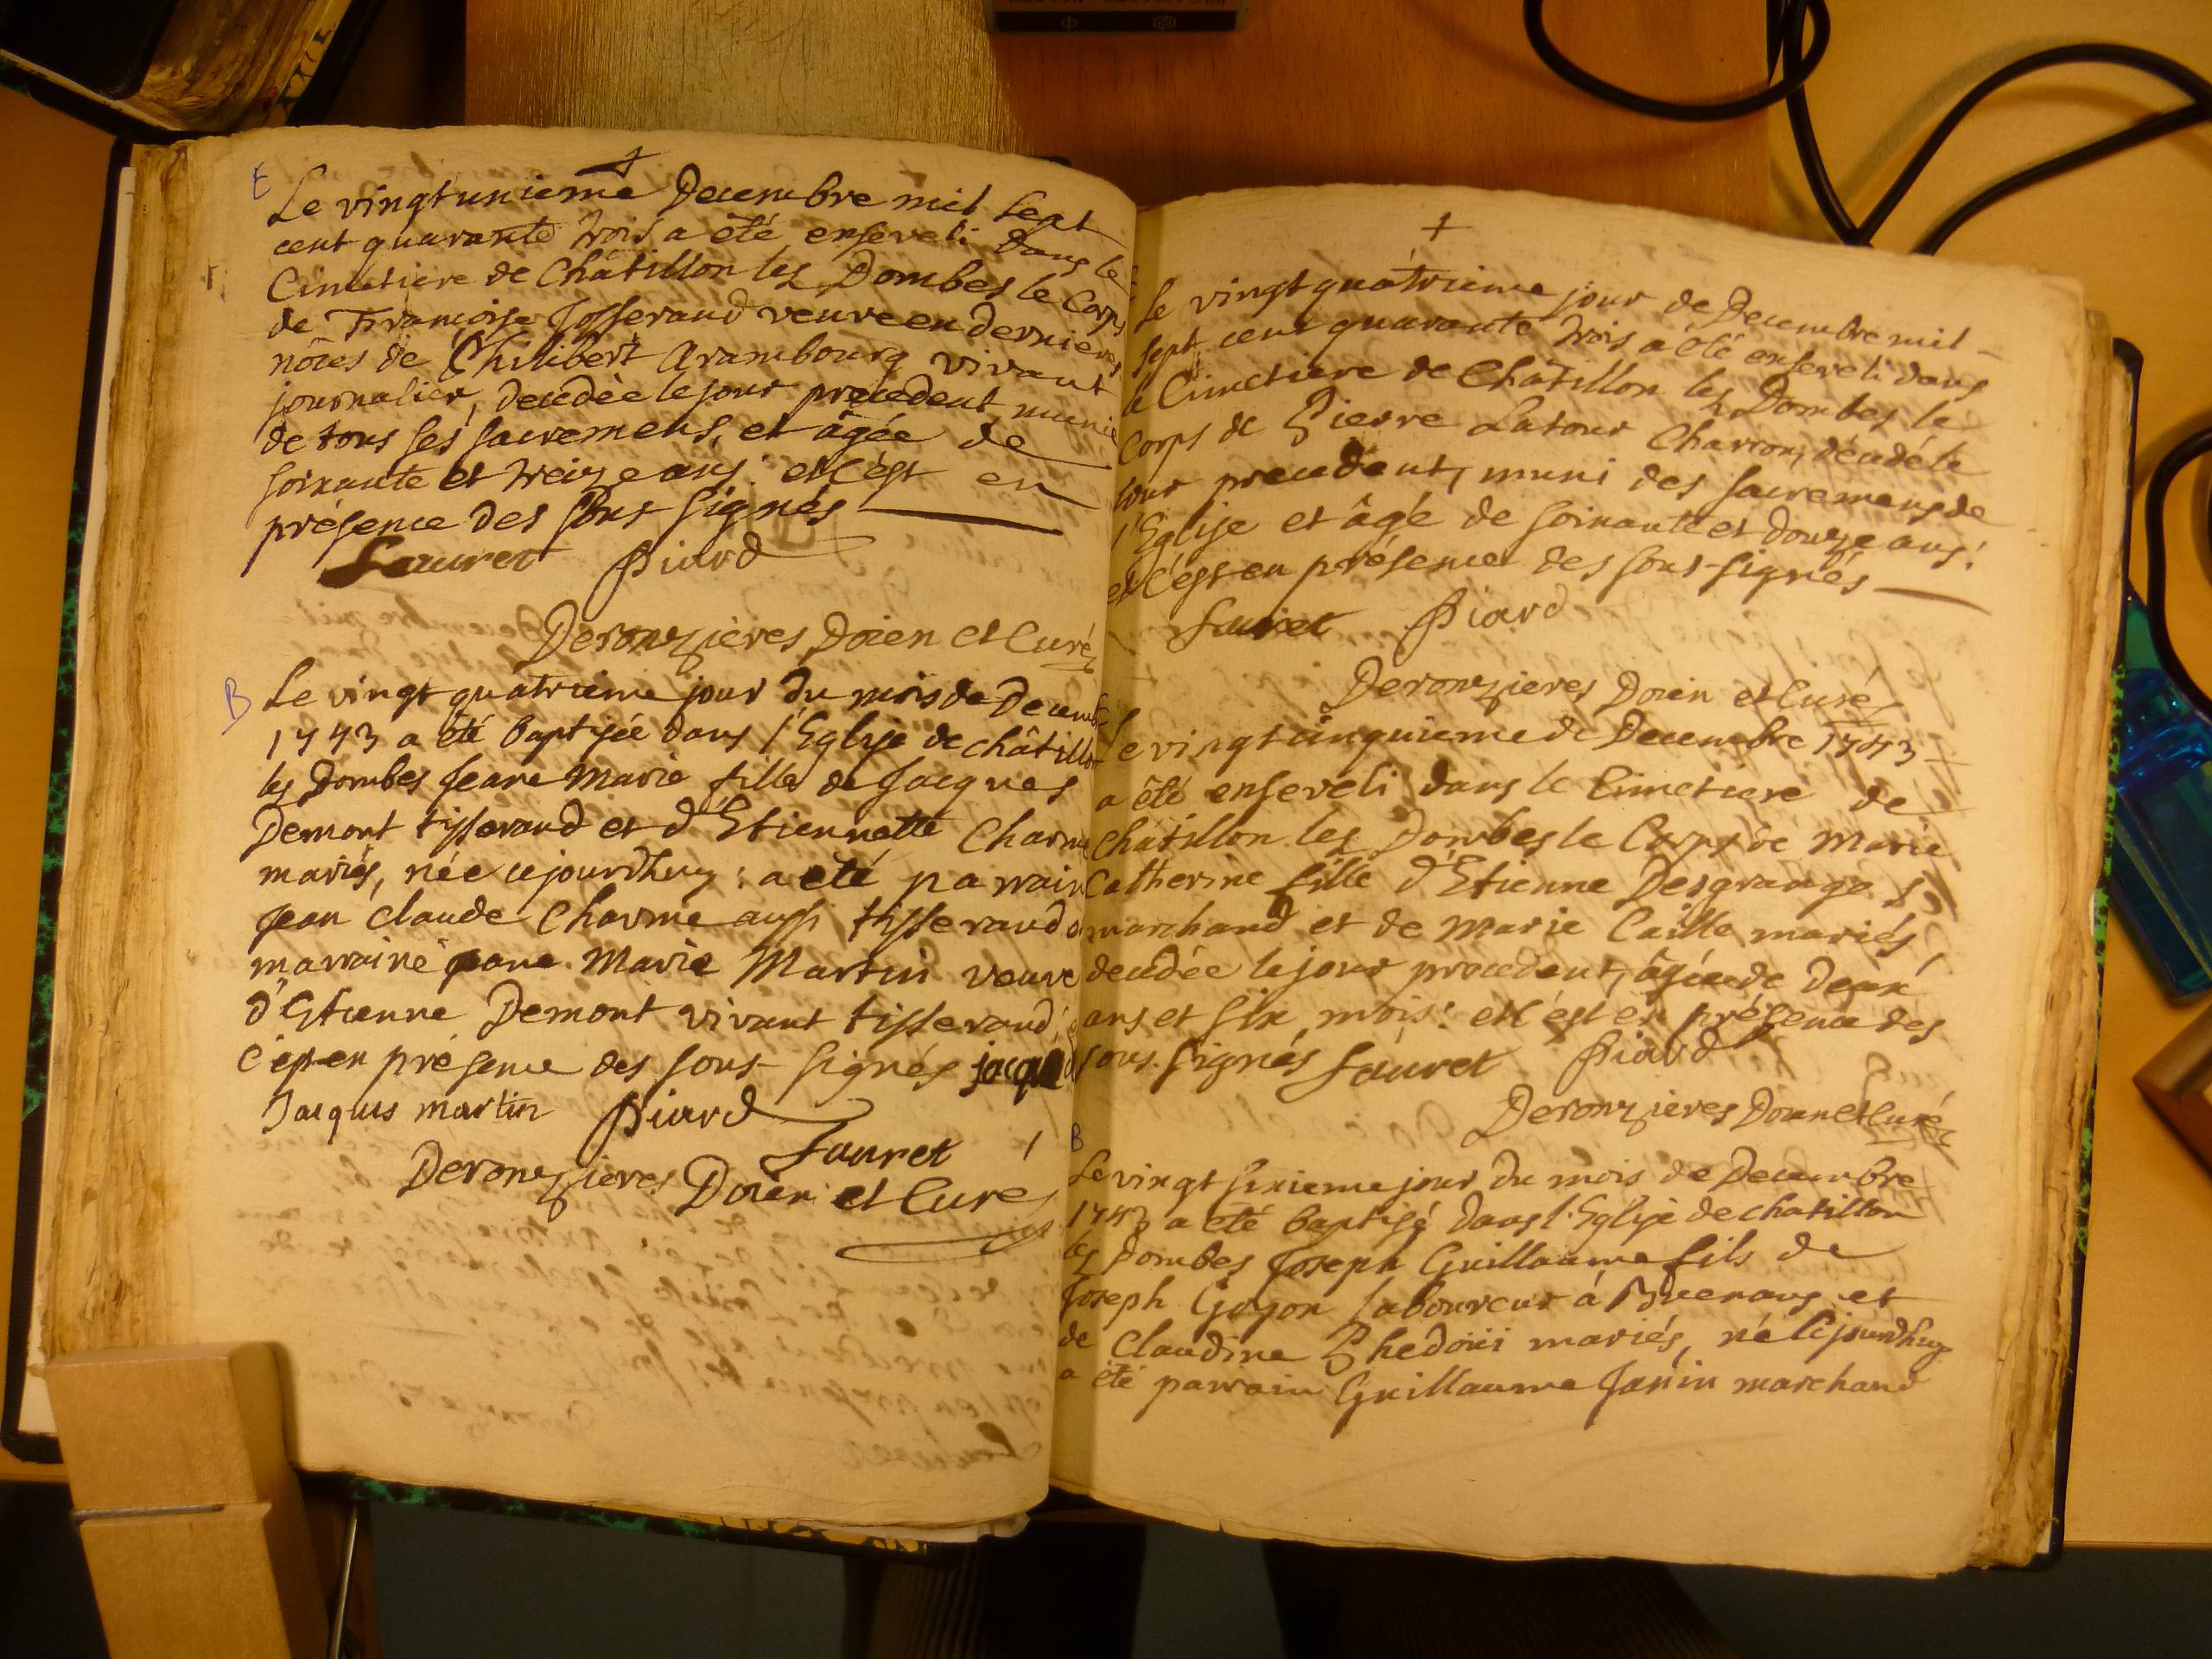 E
Le vingtunieme Decembre mil sept
cent quarante trois a été enseveli dans le
Cimetiere de Châtillon les Dombes le Corps
de Francoise Josserand veuve en dernieres
nôces de Philibert Arambourg vivant
journalier, decedée le jour precedent munie
de tous ses sacremens, et âgée de
soixante et treize ans : et c'est en
présence des sous signés
Lauret Piard
Deronzières Doien et Curé
B
Le vingt quatrieme jour du mois de Decemb
1743 a été baptisée dans l'Eglise de châtillon
les Dombes Jeane Marie fille de Jacques
Demont tisserand et d'Etiennette Charme
mariés, née cejourdhuy : a eté parrain
Jean Claude Charme aussi tisserand
marraine jeane Marie Martin veuve
d'Etienne Demont vivant tisserand
c'est en présence des sous-signés
Jacques martin Piard
Lauret
Deronzieres Doien et Curé
Le vingt quatrieme jour de Decembre mil
sept cent quarante trois a été enseveli dans
le Cimetiere de Châtillon les Dombes le
Corps de Pierre Latour Charron, décédé le
jour precedent, muni des sacremens de
l'Eglise et âgé de soixante et douze ans :
et c'est en présence des sous-signés
Lauret Piard
Deronzieres Doien et Curé
Le vingtcinquieme de Decembre 1743
a été enseveli dans le Cimetiere de
Châtillon les Dombes le Corps de Marie
Catherine fille d'Etienne Desgranges
marchand et de Marie Caille mariés,
decedée le jour precedent, âgée de deux
ans et six mois : et c'est en présence des
sous-signés Lauret Piard
Deronzieres Doien et Curé
B
Le vingt sixieme jour du mois de Decembre
1743 a eté baptisé dans l'Eglise de chatillon
les Dombes Joseph Guillaume fils de
Joseph Goyon laboureur à Buenans et
de Claudine mariés, né cejourdhuy
a été parrain Guillaume Janin marchand